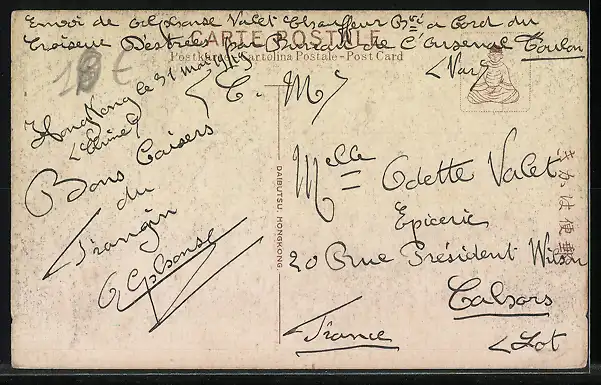 Envoi de Alphonse Valet Chauffeur Bté a Bord du
Croiseur D'Estrées par Bureau de l'Arsenal Toulon
(Var)
CARTE POSTALE
Postkarte-Cartolina Postale-Post Card
18 €
(C. M)
HongKong le 31 mars
(Chine)
Bons Baisers
du
Frangin
Alphonse
DAIBUTSU, HONGKONG
Melle Odette Valet
Epicerie
20 Rue Président Wilson
Cahors
(Lot
France
きかは便郵